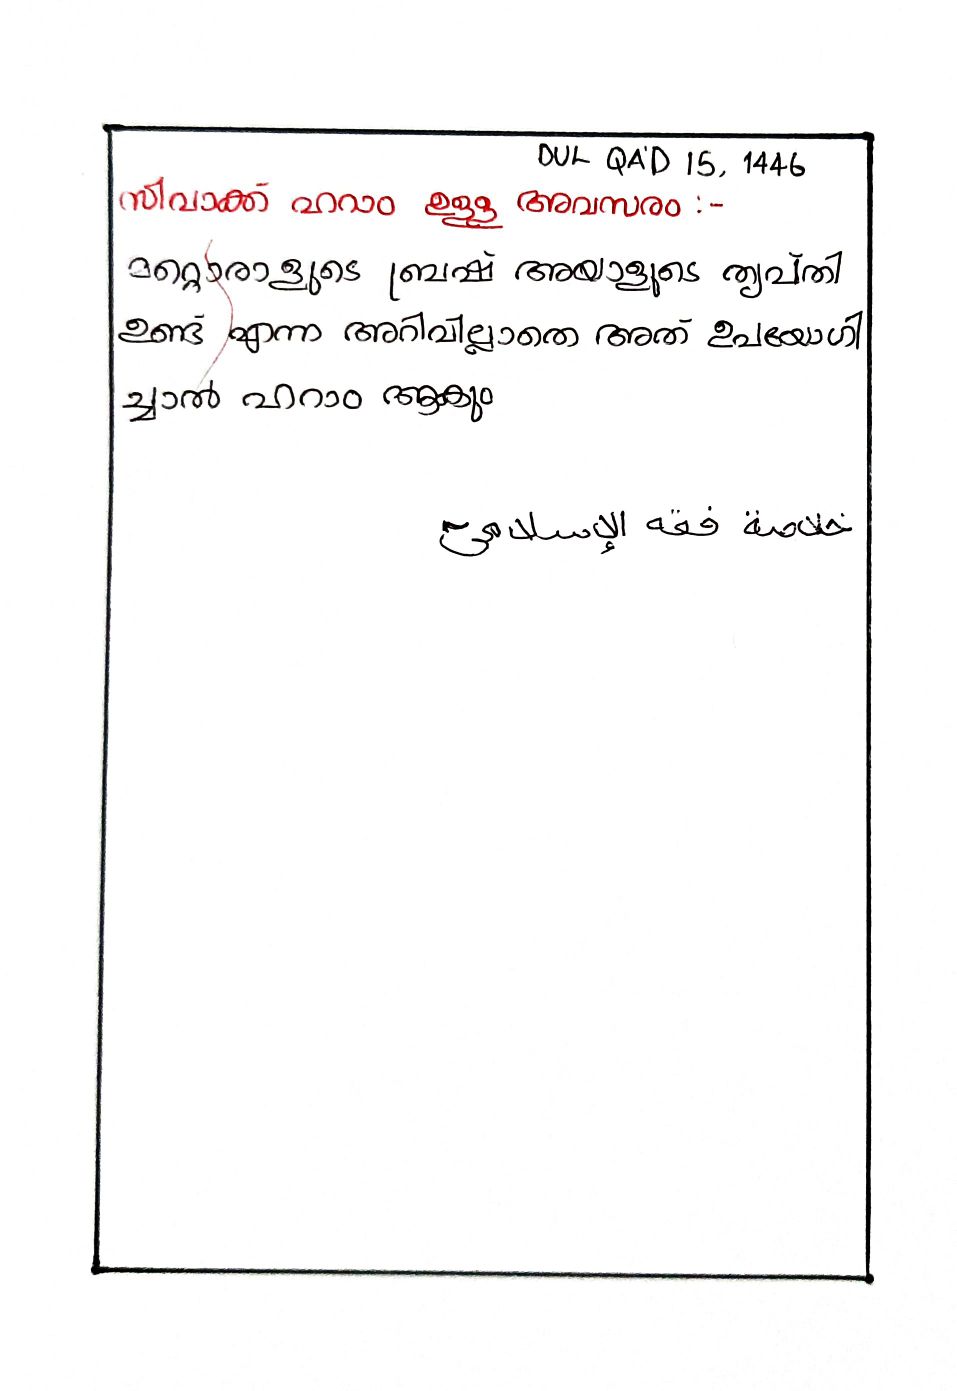 DUL QA'D 15, 1446
സിവാക്ക് ഹറാം ഉള്ള അവസരം :-
മറ്റൊരാളുടെ ബ്രഷ് അയാളുടെ തൃപ്തി
ഉണ്ട് എന്ന അറിവില്ലാതെ അത് ഉപയോഗി
ച്ചാൽ ഹറാം ആകും
خلاصة فقه الإسلامي